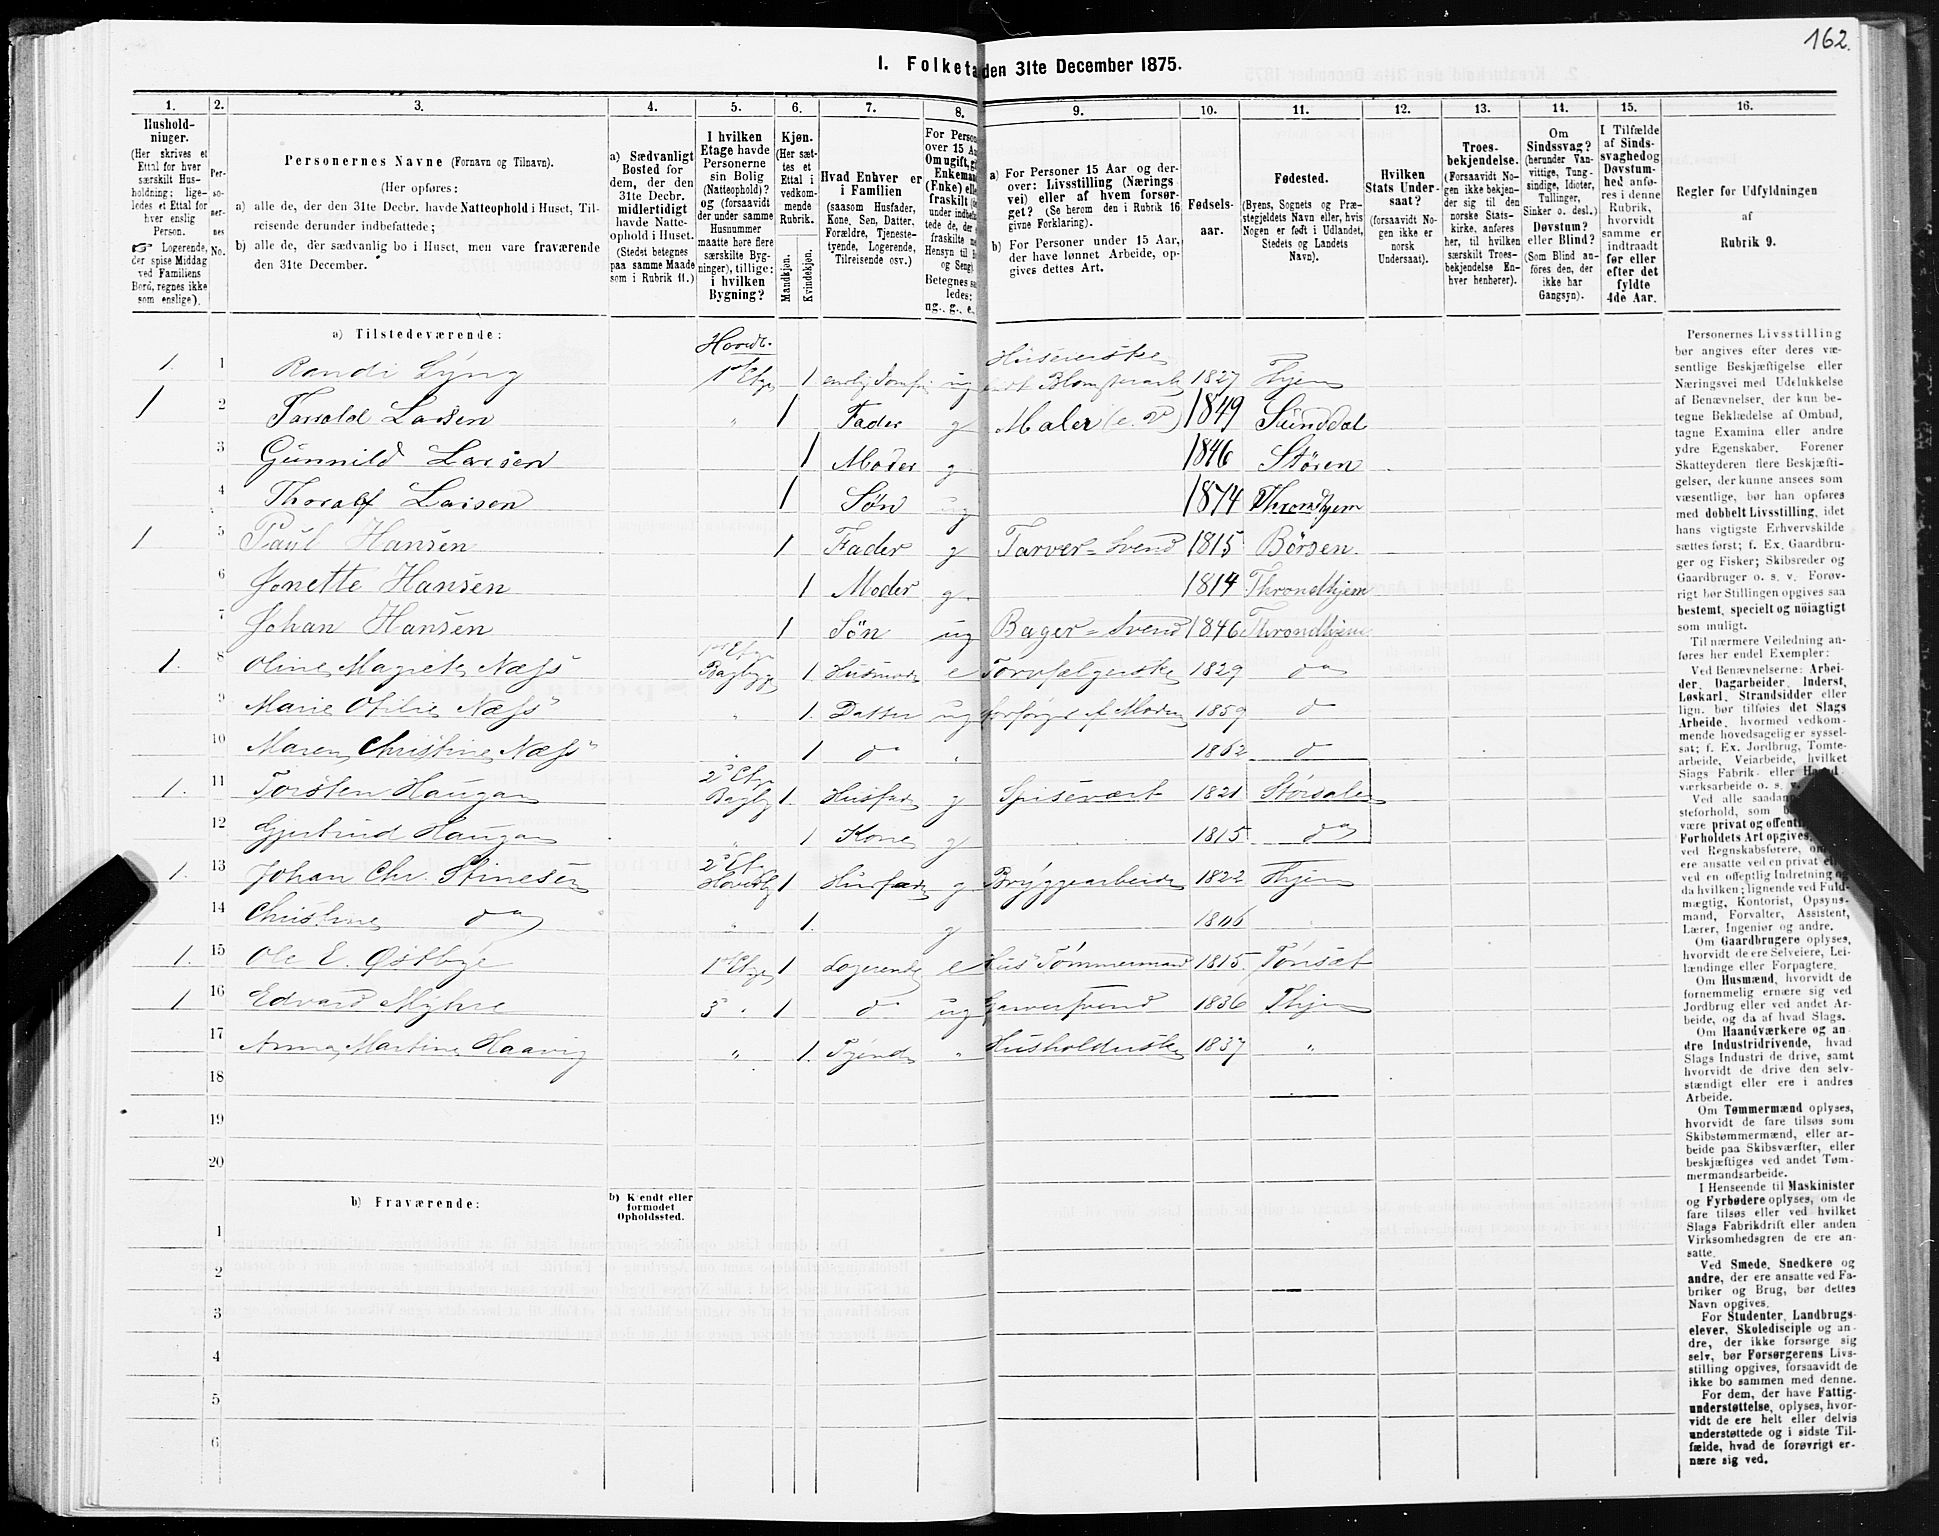 162.
I. Folketa den 31te December 1875.
1. 2. 3. 4. 5. 6. 7. 8. 9. 10. 11. 12. 13. 14. 15. 16.
Hushold-
ninger.
(Her skrives et
Ettal for hver
særskilt Hus-
holdning; lige-
ledes et Ettal for
hver enslig
Person.
☞ Logerende,
der spise Middag
ved Familiens
Bord, regnes ikke
som enslige).
Per-
so-
ner-
nes
No.
Personernes Navne (Fornavn og Tilnavn).
(Her opføres:
a) alle de, der den 31te Decbr. havde Natteophold i Huset, Til-
reisende derunder indbefattede;
b) alle de, der sædvanlig bo i Huset, men vare fraværende
den 31te December.
a) Sædvanligt
Bosted for
dem, der den
31te Decbr.
midlertidigt
havde Natte-
ophold i Huset.
(Stedet betegnes
paa samme Maade
som i Rubrik 11.)
I hvilken
Etage havde
Personerne
sin Bolig
(Natteophold)?
og (forsaavidt
der under samme
Husnummer
maatte høre flere
særskilte Byg-
ninger), tillige:
i hvilken
Bygning?
Kjøn.
(Her sæt-
tes et
Ettal i
vedkom-
mende
Rubrik.
Mandkjøn.
Kvindekjøn.
Hvad Enhver er
i Familien
(saasom Husfader,
Kone, Søn, Datter,
Forældre, Tjeneste-
tyende, Logerende,
Tilreisende osv.)
For Person
over 15 Aa
Om ugift, g
Enkeman
(Enke) elle
fraskilt
under indbefa
tede de, der
fraskilte
Hensyn til
og Seng).
Betegnes sa
ledes:
ug., g., e.,
a) For Personer 15 Aar og der-
over: Livsstilling (Nærings
vei) eller af hvem forsør-
get? (Se herom den i Rubrik 16
givne Forklaring).
b) For Personer under 15 Aar,
der have lønnet Arbeide, op-
gives dettes Art.
Fødsels-
aar.
Fødested.
(Byens, Sognets og Præ-
stegjeldets Navn eller, hvis
Nogen er født i Udlandet,
Stedets og Landets
Navn).
Hvilken
Stats Under-
saat?
(forsaavidt No-
gen ikke er
norsk
Undersaat).
Troes-
bekjendelse.
(Forsaavidt No-
gen ikke bekjen-
der sig til den
norske Stats-
kirke, anføres
her, til hvilken
særskilt Troes-
bekjendelse En-
hver henhører).
Om
Sindssvag?
(herunder Van-
vittige, Tung-
sindige, Idioter,
Tullinger,
Sinker o. desl.)
Døvstum?
eller Blind?
(Som Blind an-
føres den, der
ikke har
Gangsyn).
I Tilfælde
af Sinds-
svaghed og
Døvstum-
hed anfø-
res i denne
Rubrik,
hvorvidt
samme er
indtraadt
før eller
efter det
fyldte
4de Aar.
Regler for Udfyldningen
af
Rubrik 9.
a) Tilstedeværende:
Hovdb.
1. 1 Randi Lyng 1ste Etage 1 enslig Jomfru ug Huseierske Blomsterarb 1827 Thjem
1 2 Tarald Larsen " 1 Fader g Maler (e. D) 1849 Sunddal
3 Gunnild Larsen 1 Moder g 1846 Støren
4 Thoralf Larsen 1 Søn ug 1874 Throndhjem
1 5 Paul Hansen 1 Fader g Farver=Svend 1815 Børsen
6 Jonette Hansen 1 Moder g. 1814 Throndhjem
7 Johan Hansen 1 Søn ug Bager=Svend 1846 Throndhjem
1. 8 Oline Magrete Næss 1ste Etage Bagbyg 1. Husmoder e Torvsælgerske 1829 do
9 Marie Otilie Næss " 1. Datter ug forsørges af Moderen 1859 do
10 Maren Christine Næss " 1 do " 1862 do
1. 11 Torsten Haugan 2d Etg Bagbg 1. Husfader g Spisevært 1821 Størsalen
12 Gjertrud Haugan " 1 Kone g 1815 do
1. 13 Johan Chr. Stinesen 2d Et. Hovedbg 1 Husfader g Bryggearbeider 1822 Thjem
14 Christine do " 1. g "
1. 15 Ole E. Østbye 1ste Etage 1 Logerende e Hus Tømmermand 1815. Tønsæt
1 16 Edvard Myhre 3 " 1 do ug Garversvend 1836 Thjem
17 Anna Martine Haavig " 1. Tjende " Husholderske 1837 "
18
19
20
b) Fraværende:
b) Kjendt eller
formodet
Opholdssted.
1
2
3
4
5
6
Personernes Livsstilling
bør angives efter deres væ-
sentlige Beskjæftigelse eller
Næringsvei med Udelukkelse
af Benævnelser, der kun be-
tegne Beklædelse af Ombud,
tagne Examina eller andre
ydre Egenskaber. Forener
Skatteyderen flere Beskjæfti-
gelser, der kunne ansees som
væsentlige, bør han opføres
med dobbelt Livsstilling, idet
hans vigtigste Erhvervskilde
sættes først; f. Ex. Gaardbru-
ger og Fisker; Skibsreder og
Gaardbruger o. s. v. Forøv-
rigt bør Stillingen opgives saa
bestemt, specielt og nøiagtigt
som muligt.
Til nærmere Veiledning an-
føres her endel Exempler:
Ved Benævnelserne: Arbei-
der, Dagarbeider, Inderst,
Løskarl, Strandsidder eller
lign. bør tilføies det Slags
Arbeide, hvormed vedkom-
mende hovedsagelig er syssel-
sat; f. Ex. Jordbrug, Tomte-
arbeide, Veiarbeide, hvilket
Slags Fabrik- eller Haand-
værksarbeide o. s. v.
Ved alle saadan
steforhold, som
være privat og offent
Forholdets Art opgives,
ved Regnskabsførere, om
ere ansatte ved en privat el
ved en offentlig Indretning og
da hvilken; lignende ved Fuld-
mægtig, Kontorist, Opsyns-
mand, Forvalter, Assistent,
Lærer, Ingeniør og andre.
Om Gaardbrugere oplyses,
hvorvidt de ere Selveiere, Lei-
lændinge eller Forpagtere.
Om Husmænd, hvorvidt de
fornemmelig ernære sig ved
Jordbrug eller ved andet Ar-
beide, og da af hvad Slags.
Om Haandværkere og an-
dre Industridrivende, hvad
Slags Industri de drive, samt
hvorvidt de drive den selv-
stændigt eller ere i andres
Arbeide.
Om Tømmermænd oplyses,
hvorvidt de fare tilsøs som
Skibstømmermænd, eller ar-
beide paa Skibsværfter, eller
beskjæftiges ved andet Tøm-
mermandsarbeide.
I Henseende til Maskinister
og Fyrbødere oplyses, om de
fare tilsøs eller ved hvilket
Slags Fabrikdrift eller anden
Virksomhedsgren de ere an-
satte.
Ved Smede, Snedkere og
andre, der ere ansatte ved Fa-
briker og Brug, bør dettes
Navn opgives.
For Studenter, Landbrugs-
elever, Skoledisciple og an-
dre, der ikke forsørge sig
selv, bør Forsørgerens Livs-
stilling opgives, forsaavidt de
ikke bo sammen med denne.
For dem, der have Fattig-
understøttelse, oplyses, hvor-
vidt de ere helt eller delvis
understøttede og i sidste Til-
fælde, hvad de forøvrigt er-
nære sig ved.